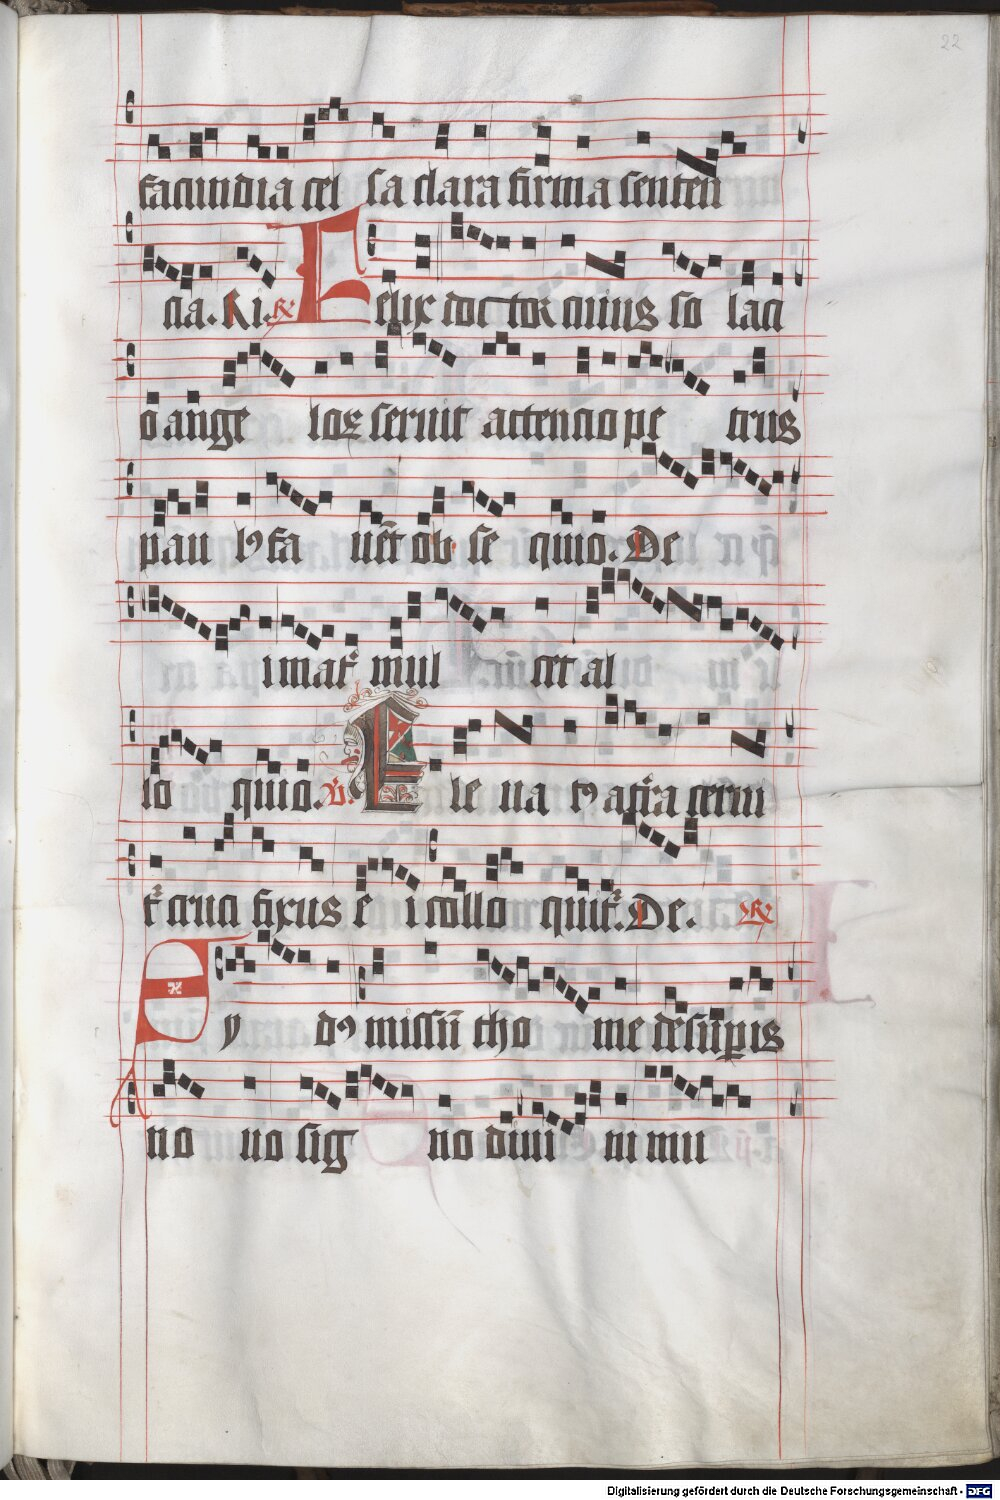 22
facundia cel sa clara firma senten
cia. Ri. ℟ Felix doctor cuius so laci
o ange loꝝ seruit attencio pe trus
pau lꝰ fa uēt ob se quio. De
i mat̄ mul cet al
lo quio. ℣. Le le na ꝯ aspera cerni
t̄ cruci fixus e i collo quit̄. De. ℟
y dꝰ missū tho me
no uo sig no diui ni mu
Digitalisierung gefördert durch die Deutsche Forschungsgemeinschaft - DFG